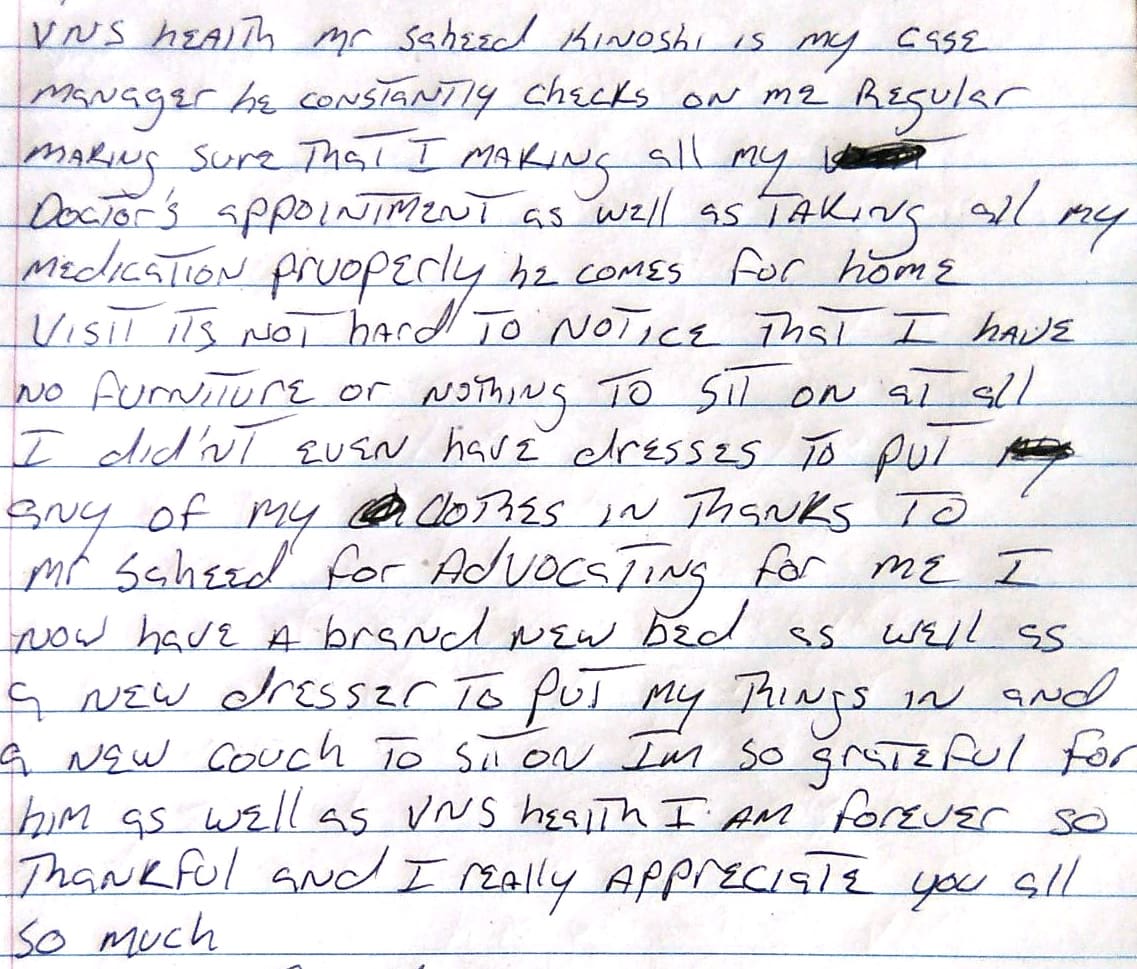 VNS health mr Saheed Kinoshi is my case
manager he constantly checks on me Regular
making sure That I making all my
Doctor's appointment as well as Taking all my
medication pruoperly he comes for home
Visit its not hard To notice That I have
no furniture or nothing To sit on at all
I did'nt even have dresses To put
any of my clothes in Thanks To
mr Saheed for Advocating for me I
now have A brand new bed as well as
a new dresser To put my Things in and
a new couch To sit on Im so grateful for
him as well as VNS health I am forever so
Thankful and I really Appreciate you all
so much